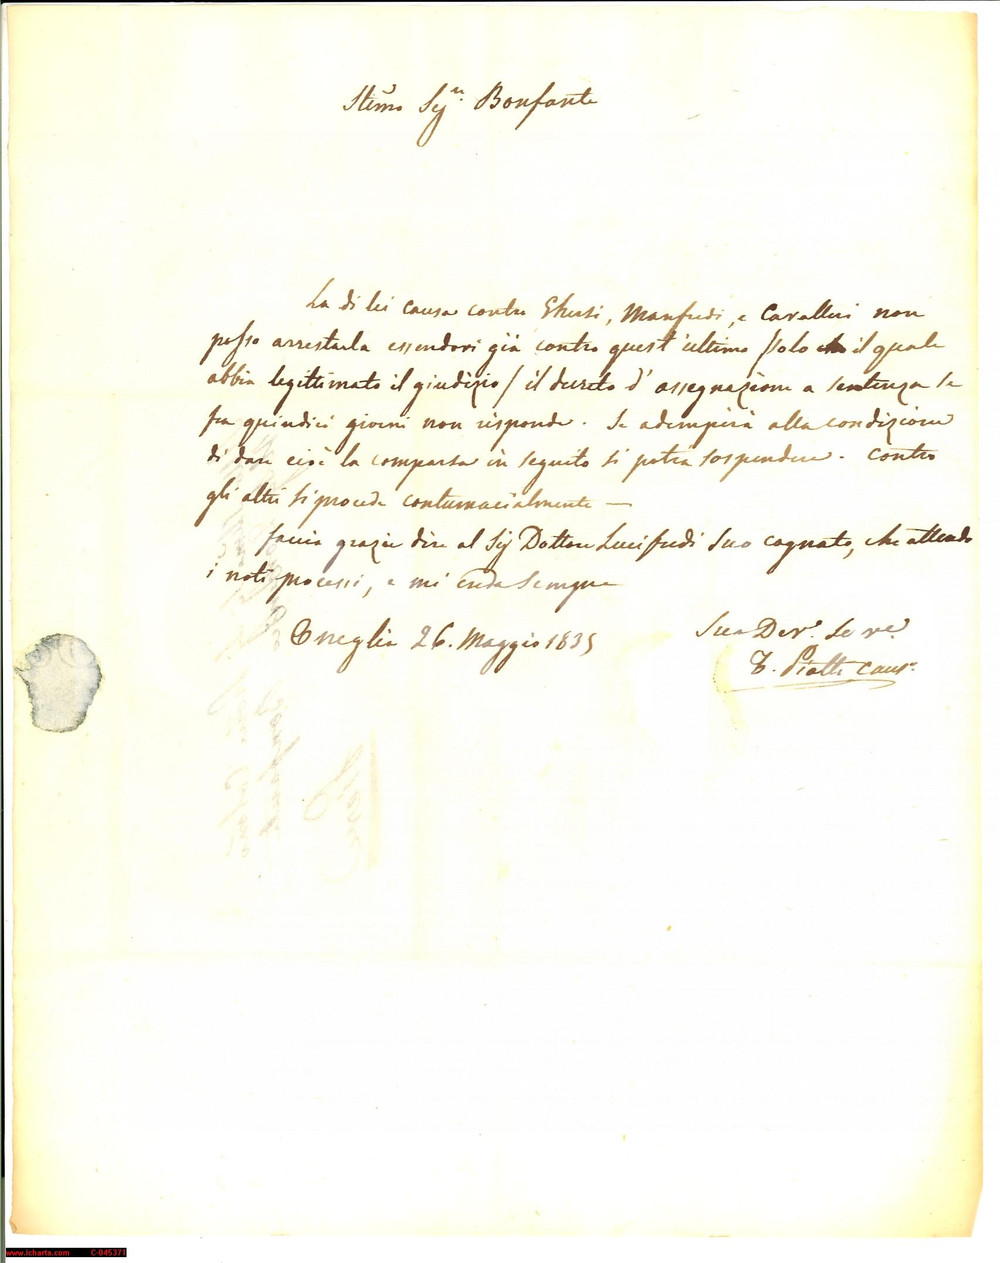 Stimo Sigr. Bonfante
La di lei causa contro Ghersi, Manfredi, e Cavalleri non
posso arrestarla essendovi già contro quest'ultimo /solo il quale
abbia legittimato il giudizio/ il decreto d'assegnazione a sentenza se
fra quindici giorni non risponde. Se adempirà alla condizione
di dare cioè la comparsa in seguito si potrà sospendere. Contro
gli altri si procede contumacialmente —
Faccia grazie dire al Sig Dottore Lucifredi suo cognato, che attendo
i noti processi, e mi creda sempre
Oneglia 26. Maggio 1835
Sua Devo. Serve.
Piatti Caus.
www.icharta.com C-045371